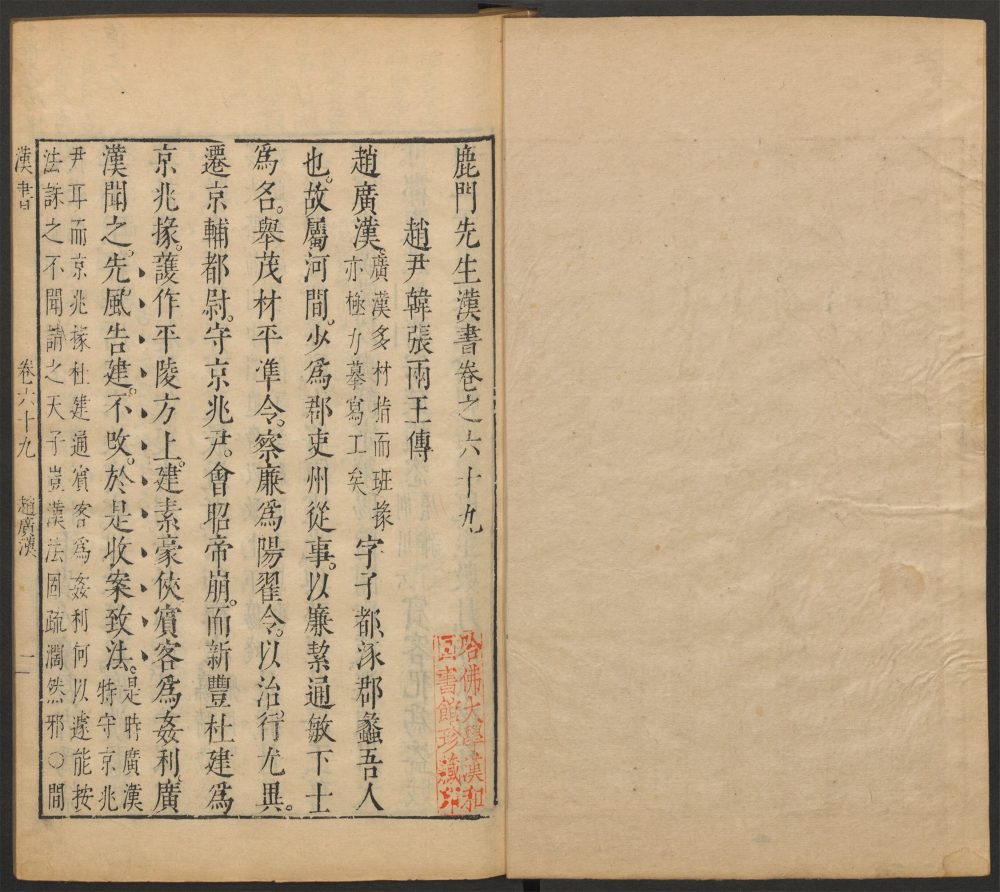 鹿門先生漢書卷之六十九
趙尹韓張兩王傳
趙廣漢廣漢多材指而班掾亦極力摹寫工矣字子都涿郡蠡吾人
也故屬河間少爲郡吏州從事以廉絜通敏下士
爲名舉茂材平準令察廉爲陽翟令以治行尤異
遷京輔都尉守京兆尹會昭帝崩而新豐杜建爲
京兆掾護作平陵方上建素豪俠賓客爲姦利廣
漢聞之先風告建不改於是收案致法是時廣漢特守京兆
尹耳而京兆掾杜建通賓客爲姦利何以遽能按
法誅之不聞請之天子豈漢法固疏濶然邪○間
漢書 卷六十九 趙廣漢 一
哈佛大學漢和
圖書館珍藏印